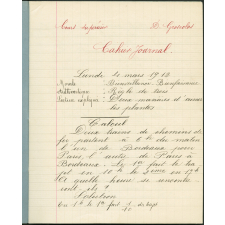 Cours supérieur D. Gabriel
Cahier Journal.
Lundi 3 mars 1913
Morale : Bienveillance Bienfaisance
Arithmétique : Règle de trois
Deux manières
les plantes
Calcul
Deux trains de chemins de
fer partent à 6h du matin
l'un de Bordeaux pour
Paris, l'autre de Paris à
Bordeaux. Le 1er fait le tra
jet en 10h le 2ème en 17h
A quelle heure se rencontre
ront-ils ?
Solution
En 1h le 1er fait du trajet